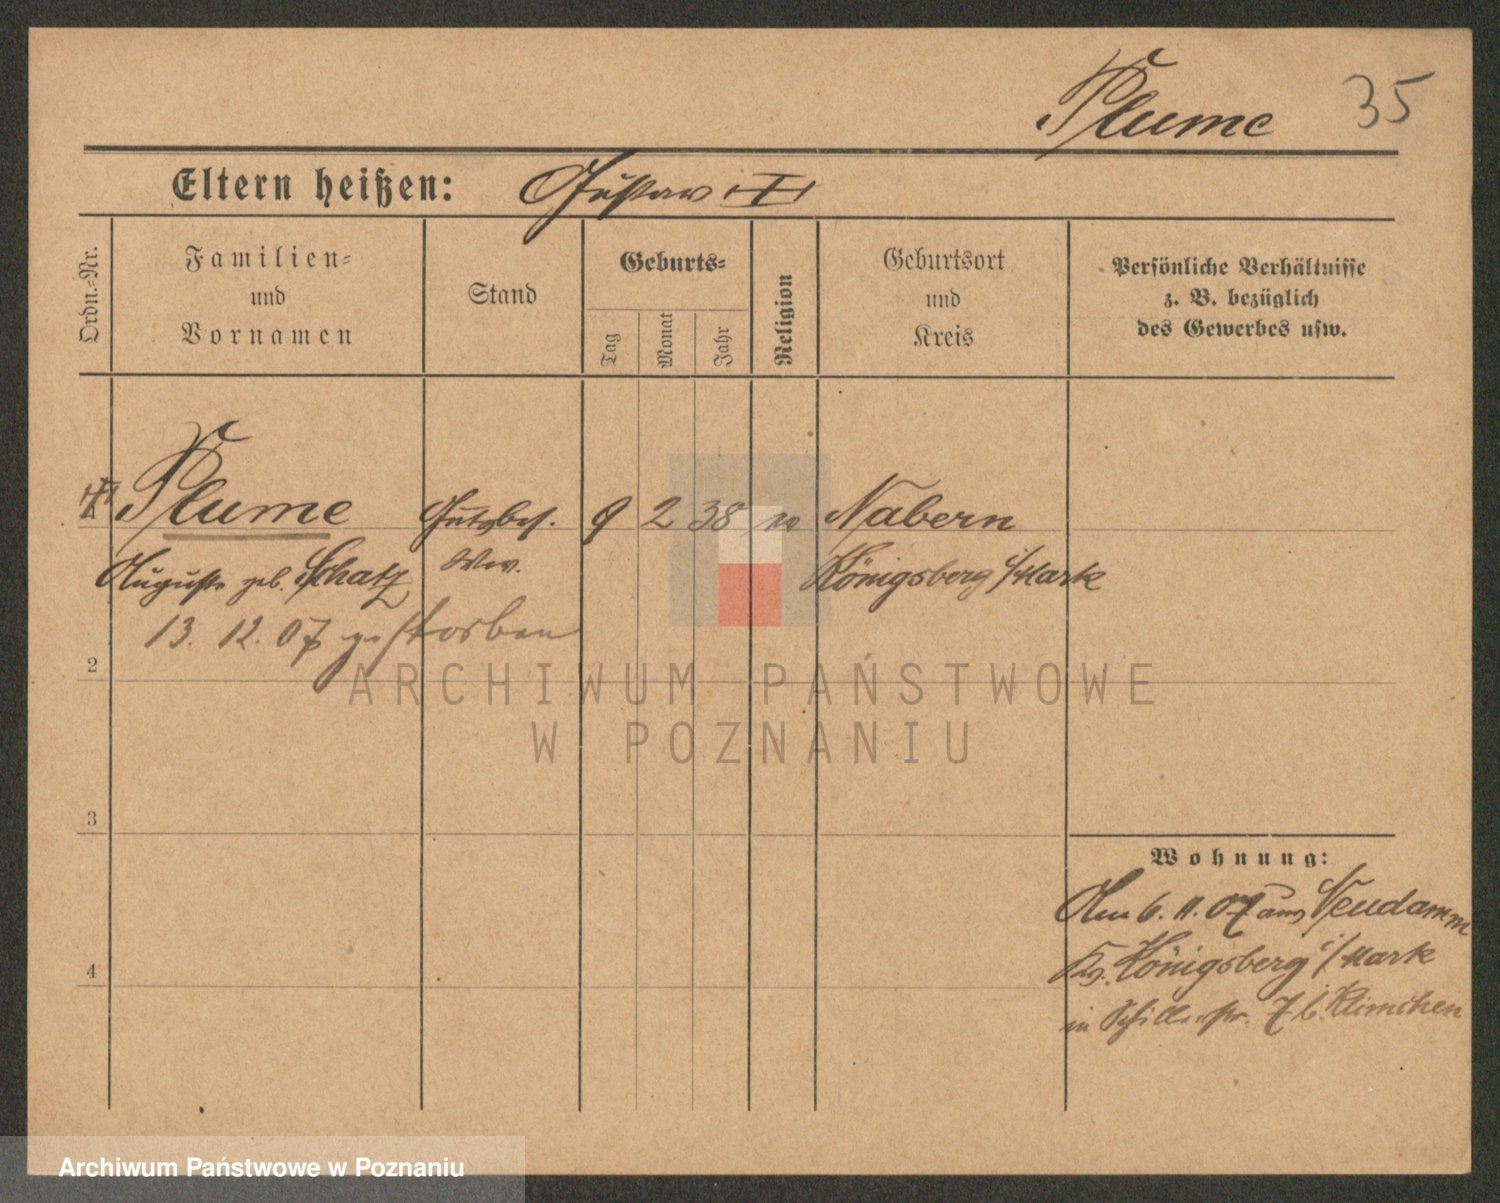 Plume 35
Eltern heißen: Gustav
Ordn.-Nr.
Familien-
und
Vornamen
Stand
Geburts-
Tag
Monat
Jahr
Religion
Geburtsort
und
Kreis
Persönliche Verhältnisse
z. B. bezüglich
des Gewerbes usw.
Plume Gutsbes. 9 2 38 ev Nabern
Auguste geb. Schatz Wwe. Königsberg i/Mark
13. 12. 07 gestorben
2
ARCHIWUM PAŃSTWOWE
W POZNANIU
3
Wohnung:
Am 6. 11. 07 aus Neudamm
Kr. Königsberg i/Mark
in Schillerstr. 7 b. Klimchen
4
Archiwum Państwowe w Poznaniu